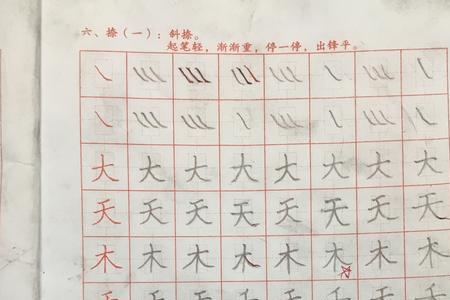 六、捺（一）：斜捺。
起笔轻，渐渐重，停一停，出锋平。
大 大 大 大 大 大 大 大
天 天 天 天 天 天 天 天
木 木 木 木 木 木 木 木